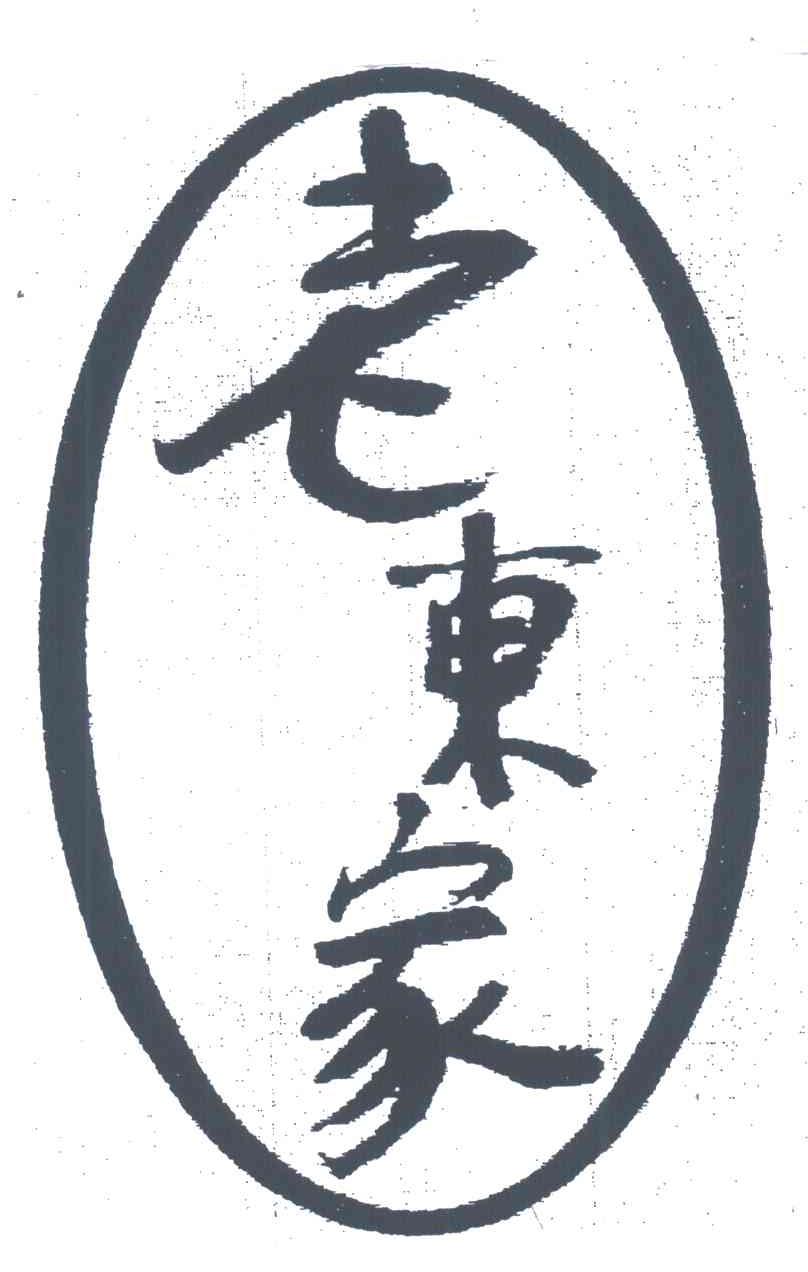 老東家